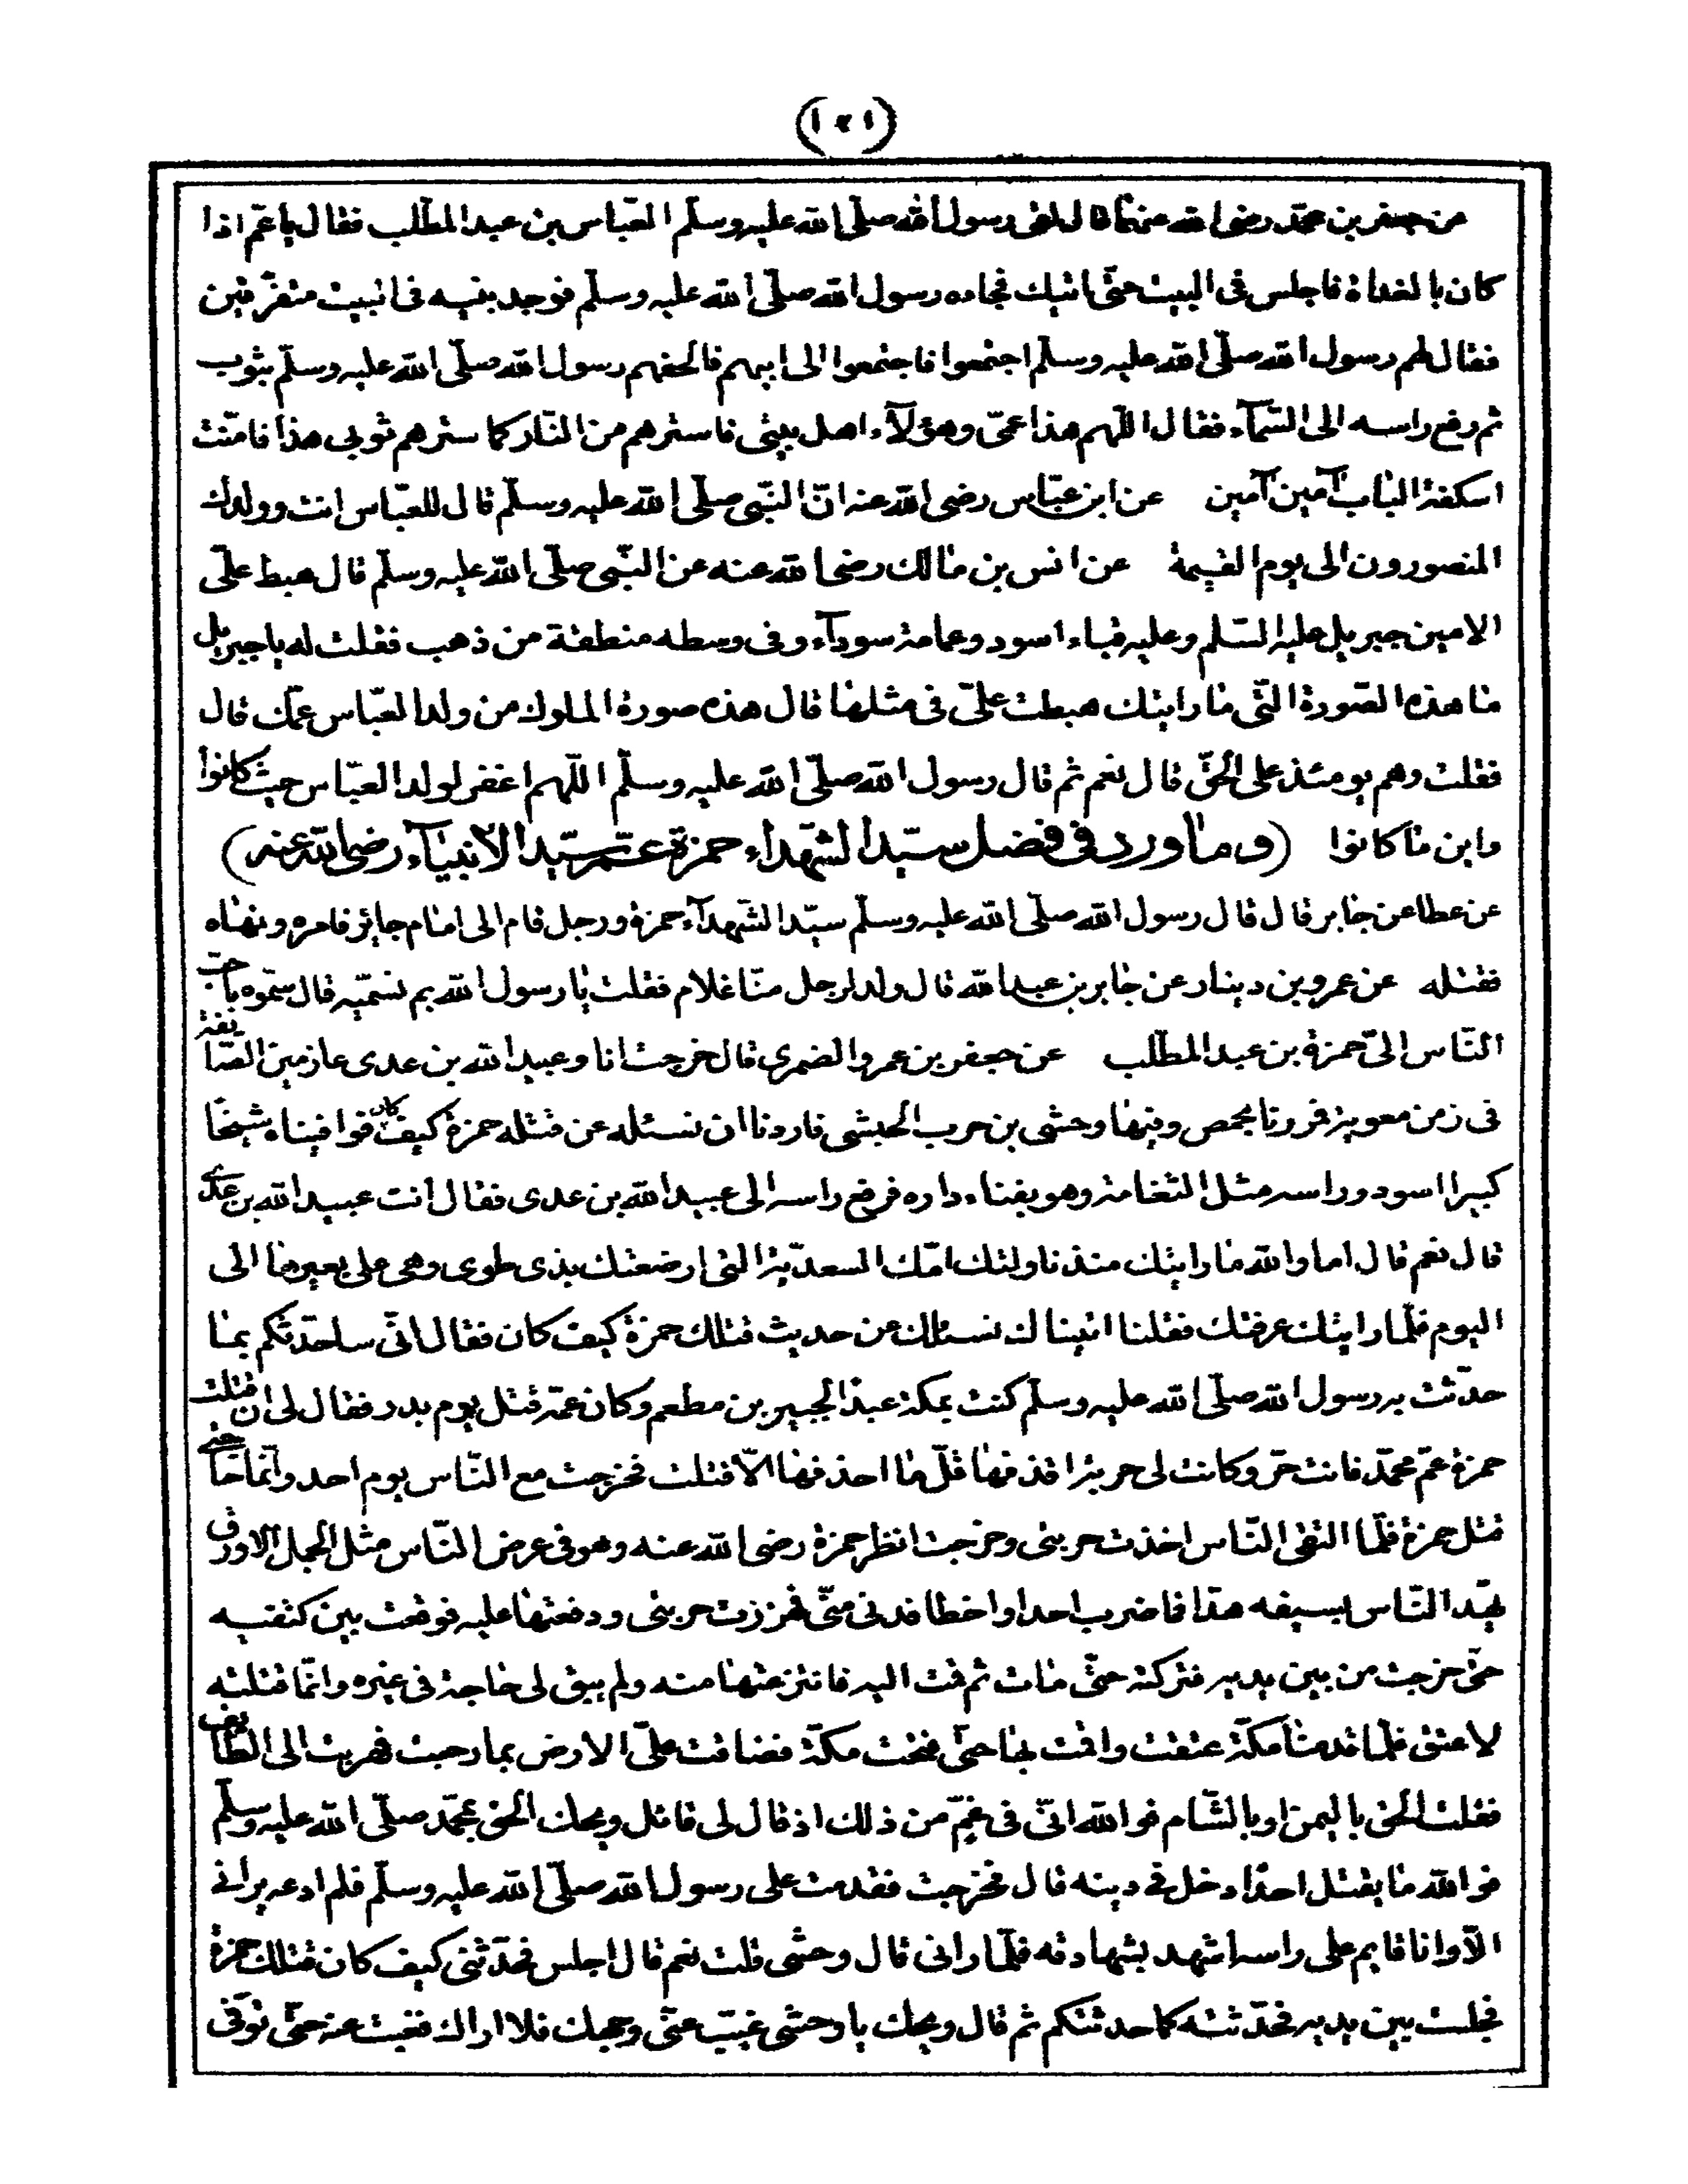 عن جعفر بن محمّد رضى الله عنهما قال لقى رسول الله صلّى الله عليه وسلّم العبّاس بن عبد المطّلب فقال يا عمّ اذا
كان بالغداة فاجلس فى البيت حتّى اتيك فجاءه رسول الله صلّى الله عليه وسلّم فوجد بنيه فى البيت متفرّقين
فقال لهم رسول الله صلّى الله عليه وسلّم اجتمعوا فاجتمعوا الى ابيهم فالحفهم رسول الله صلّى الله عليه وسلّم بثوب
ثم رفع راسه الى السّمآء فقال اللّهم هذا عمّى وهؤلآء اهل بيتى فاسترهم من النّار كما سترهم ثوبى هذا فامّنت
اسكفة الباب آمين آمين عن ابن عبّاس رضى الله عنه انّ النّبى صلّى الله عليه وسلّم قال للعبّاس انت وولدك
المنصورون الى يوم القيمة عن انس بن مالك رضى الله عنه عن النّبى صلّى الله عليه وسلّم قال هبط علىّ
الامين جبريل عليه السّلم وعليه قباء اسود وعمامة سودآء وفى وسطه منطقة من ذهب فقلت له يا جبريل
ما هذه الصّورة الّتى ما رايتك هبطت علىّ فى مثلها قال هذه صورة الملوك من ولد العبّاس عمّك قال
فقلت وهم يومئذ على الحقّ قال نعم ثم قال رسول الله صلّى الله عليه وسلّم اللّهم اغفر لولد العبّاس حيث كانوا
واين ما كانوا (وما ورد فى فضل سيّد الشهداء حمزة عمّ سيّد الانبيآء رضى الله عنه)
عن عطا عن جابر قال قال رسول الله صلّى الله عليه وسلّم سيّد الشّهدآء حمزة ورجل قام الى امام جائر فامره ونهاه
فقتله عن عمرو بن دينار عن جابر بن عبد الله قال ولد لرجل منّا غلام فقلت يا رسول الله بم نسمّيه قال سمّوه باحبّ
النّاس الىّ حمزة بن عبد المطّلب عن جعفر بن عمرو الضمرى قال خرجت انا وعبيد الله بن عدى عازمين الصّايفة
فى زمن معوية فمررنا بحمص وفيها وحشى بن حرب الحبشى فاردنا ان نسئله عن قتله حمزة كيف كان فوافيناه شيخا
كبيرا اسود وراسه مثل الثغامة وهو بفناء داره فرفع راسه الى عبيد الله بن عدى فقال أنت عبيد الله بن عدى
قال نعم قال اما والله ما رايتك منذ ناولتك امّك السعديّة التى ارضعتك بذى طوى وهى على بعيرها الى
اليوم فلمّا رايتك عرفتك فقلنا اتينا لك نسئلك عن حديث قتلك حمزة كيف كان فقال انّى ساحدّثكم بما
حدّثت به رسول الله صلّى الله عليه وسلّم كنت بمكة عبدا لجبير بن مطعم وكان عمّه قتل يوم بدر فقال لى ان قتلت
حمزة عمّ محمّد فانت حرّ وكانت لى حربة اقذفها قلّ ما احذفها الاّ قتلت فخرجت مع النّاس يوم احد وانّما حاجتى
قتل حمزة فلمّا التقى النّاس اخذت حربتى وخرجت انظر حمزة رضى الله عنه وهو فى عرض النّاس مثل الجمل الاورق
يهدّ النّاس بسيفه هدّا فاضرب احدا واخطا فدنى منّى فهززت حربتى ودفعتها عليه فوقعت بين كتفيه
حتّى خرجت من بين يديه فتركته حتّى مات ثم قمت اليه فانتزعتها منه ولم يبق لى حاجة فى غيره وانّما قتلته
لاعتق فلمّا قدمت مكّة عتقت واقمت بها حتّى فتحت مكّة فضاقت علىّ الارض بما رحبت فهربت الى الطّايف
فقلت الحق باليمن او بالشّام فوالله انّى فى غمّ من ذلك اذ قال لى قائل ويحك الحق بمحمّد صلّى الله عليه وسلّم
فوالله ما يقتل احدا دخل فى دينه قال فخرجت فقدمت على رسول الله صلّى الله عليه وسلّم فلم ادعه يرانى
الاّ وانا قايم على راسه اشهد بشهادته فلمّا رانى قال وحشى قلت نعم قال اجلس فحدّثنى كيف كان قتلك حمزة
فجلست بين يديه فحدّثته كما حدثتكم ثم قال ويحك يا وحشى غيّب عنّى وجهك فلا اراك فغبت عنه حتّى توفّى